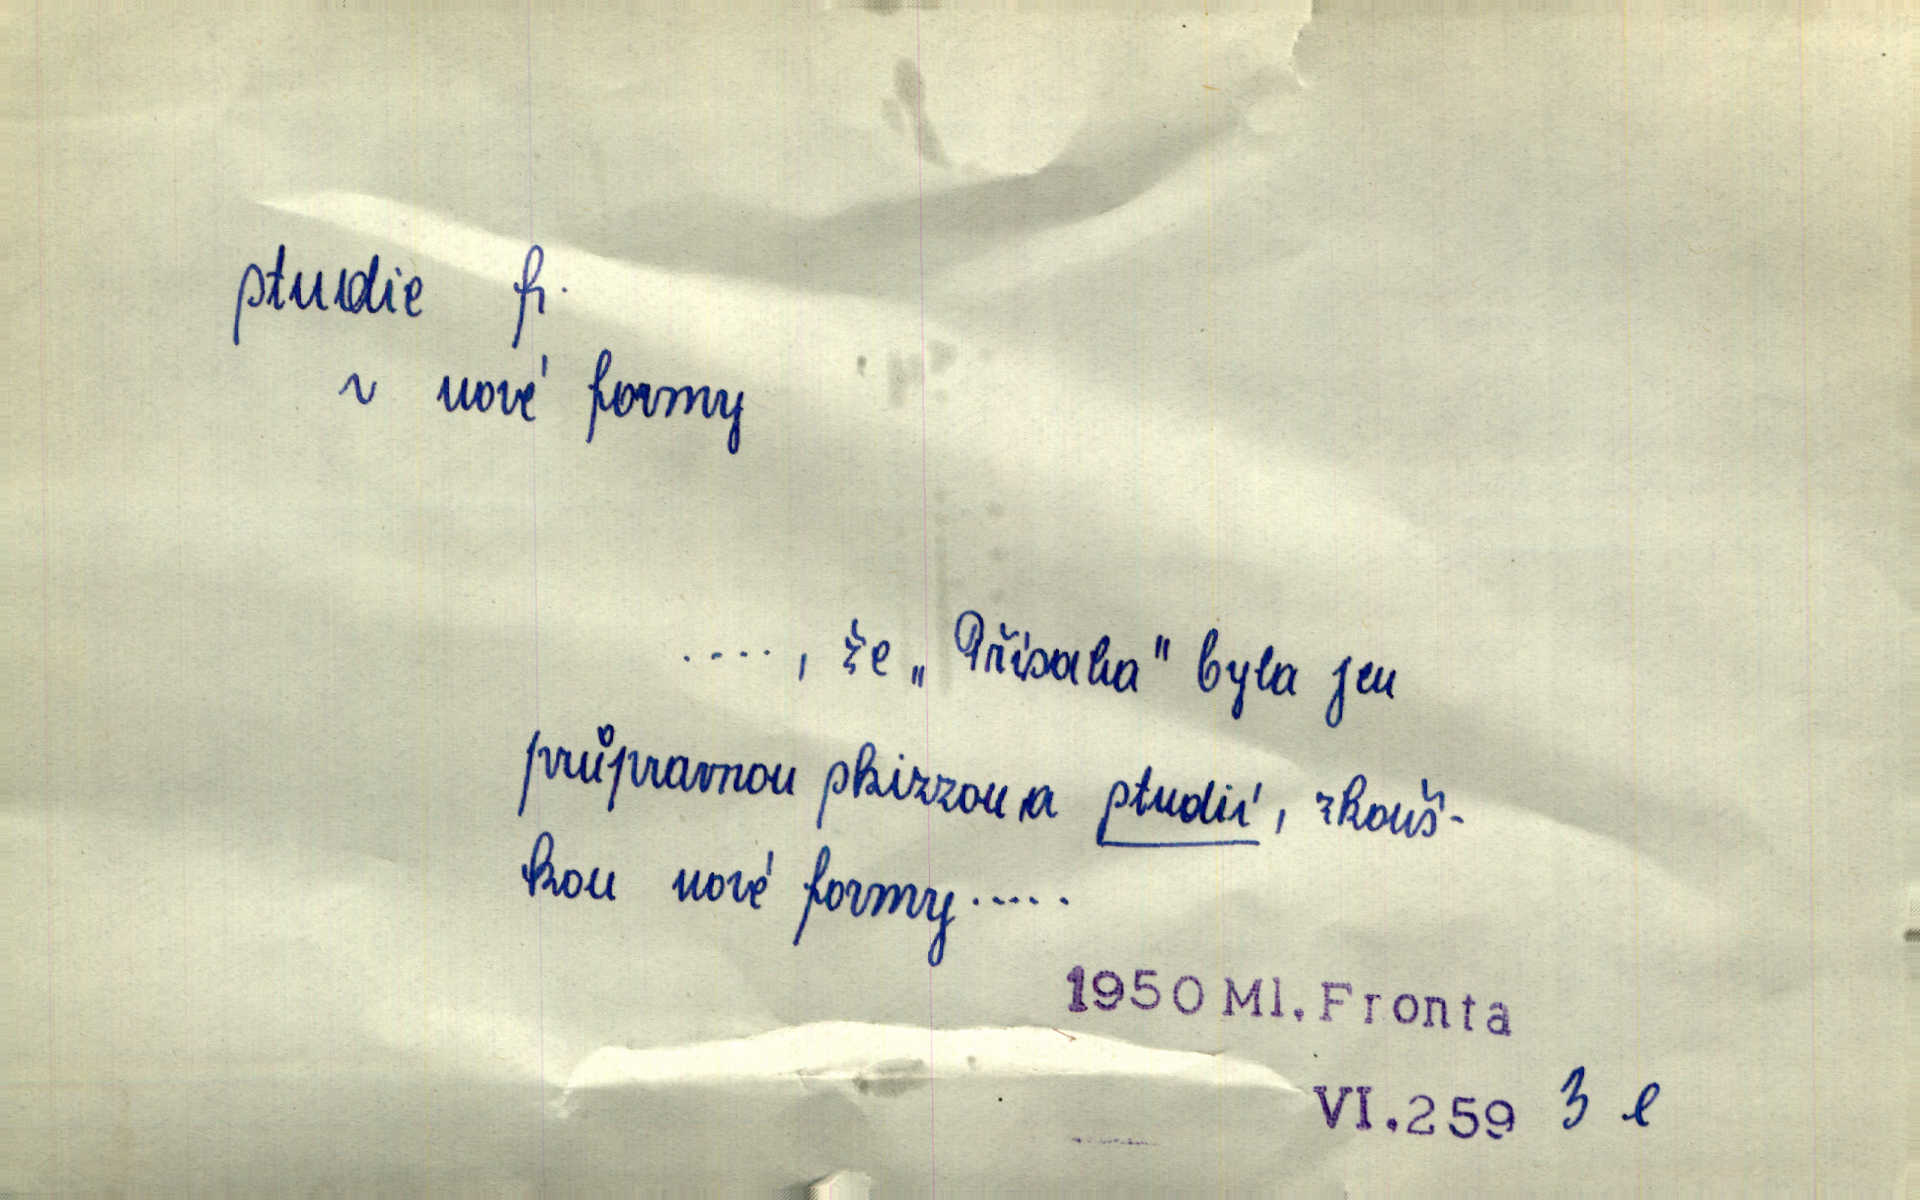 studie f.
v nové formy
...., že „Přísaha" byla jen
průpravnou skizzou a studií, zkouš-
kou nové formy.....
1950 Ml. Fronta
VI.259 3 e